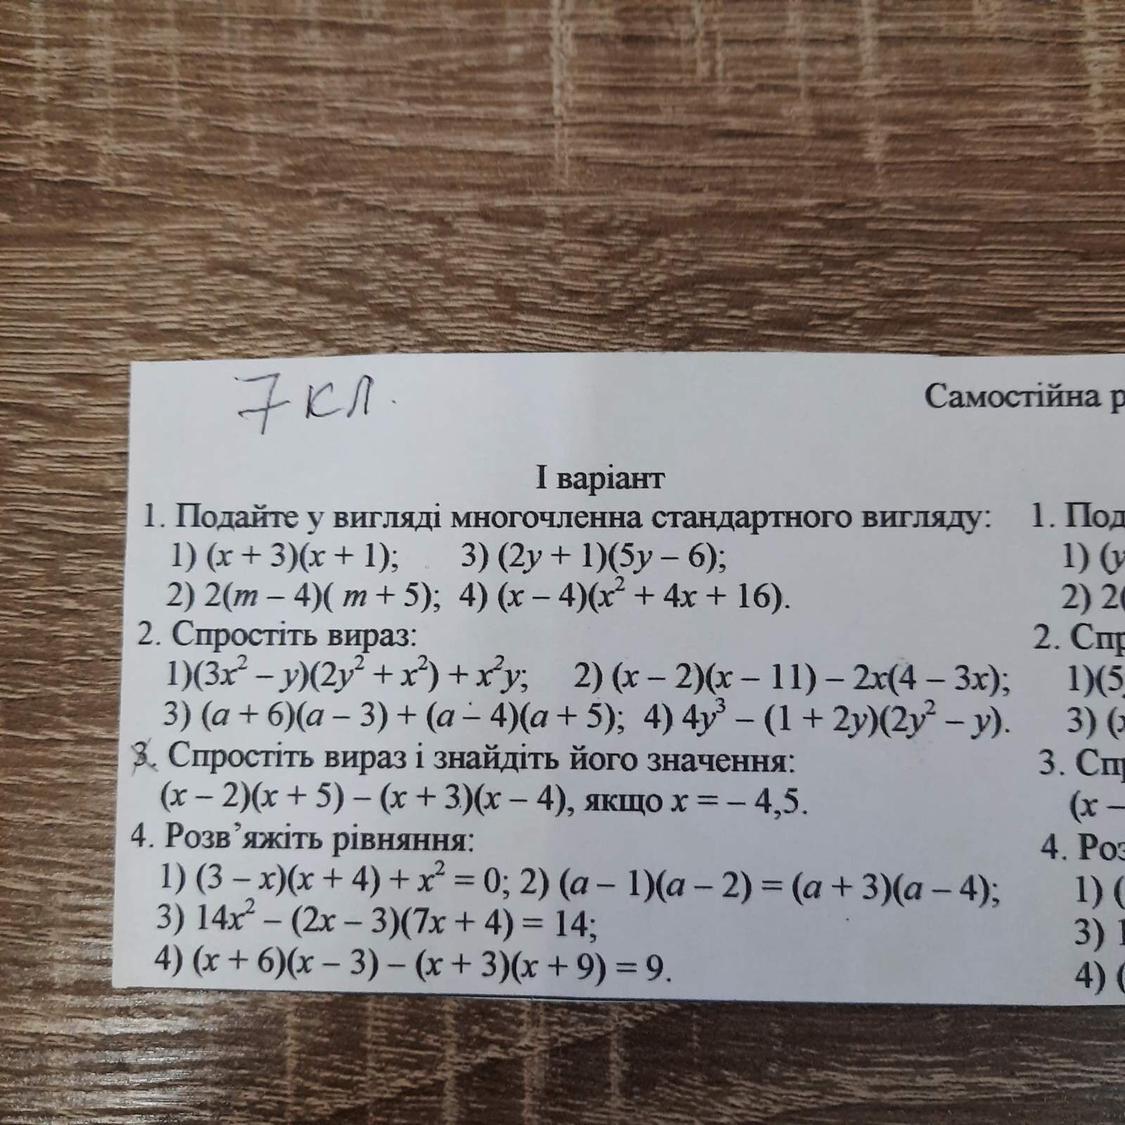 7 кл.
Самостійна р
І варіант
1. Подайте у вигляді многочленна стандартного вигляду:
1) (x + 3)(x + 1); 3) (2y + 1)(5y – 6);
2) 2(m – 4)( m + 5); 4) (x – 4)(x² + 4x + 16).
2. Спростіть вираз:
1)(3x² – y)(2y² + x²) + x²y; 2) (x – 2)(x – 11) – 2x(4 – 3x);
3) (a + 6)(a – 3) + (a – 4)(a + 5); 4) 4y³ – (1 + 2y)(2y² – y).
3. Спростіть вираз і знайдіть його значення:
(x – 2)(x + 5) – (x + 3)(x – 4), якщо x = – 4,5.
4. Розв’яжіть рівняння:
1) (3 – x)(x + 4) + x² = 0; 2) (a – 1)(a – 2) = (a + 3)(a – 4);
3) 14x² – (2x – 3)(7x + 4) = 14;
4) (x + 6)(x – 3) – (x + 3)(x + 9) = 9.
1. Под
1) (y
2) 2(
2. Спр
1)(5
3) (x
3. Сп
(x –
4. Роз
1) (
3) 1
4) (